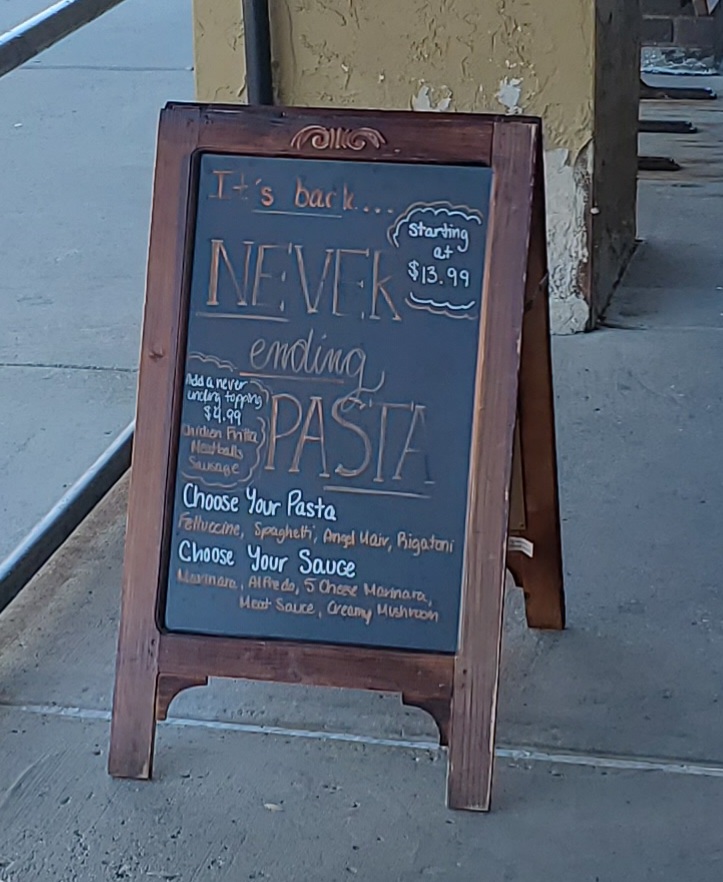 It's back....
starting
at
$13.99
NEVER
ending
PASTA
Add a never
ending topping
$4.99
Chicken Fritta
Meatballs
Sausage
Choose Your Pasta
Fettuccine, Spaghetti, Angel Hair, Rigatoni
Choose Your Sauce
Marinara, Alfredo, 5 Cheese Marinara,
Meat Sauce, Creamy Mushroom